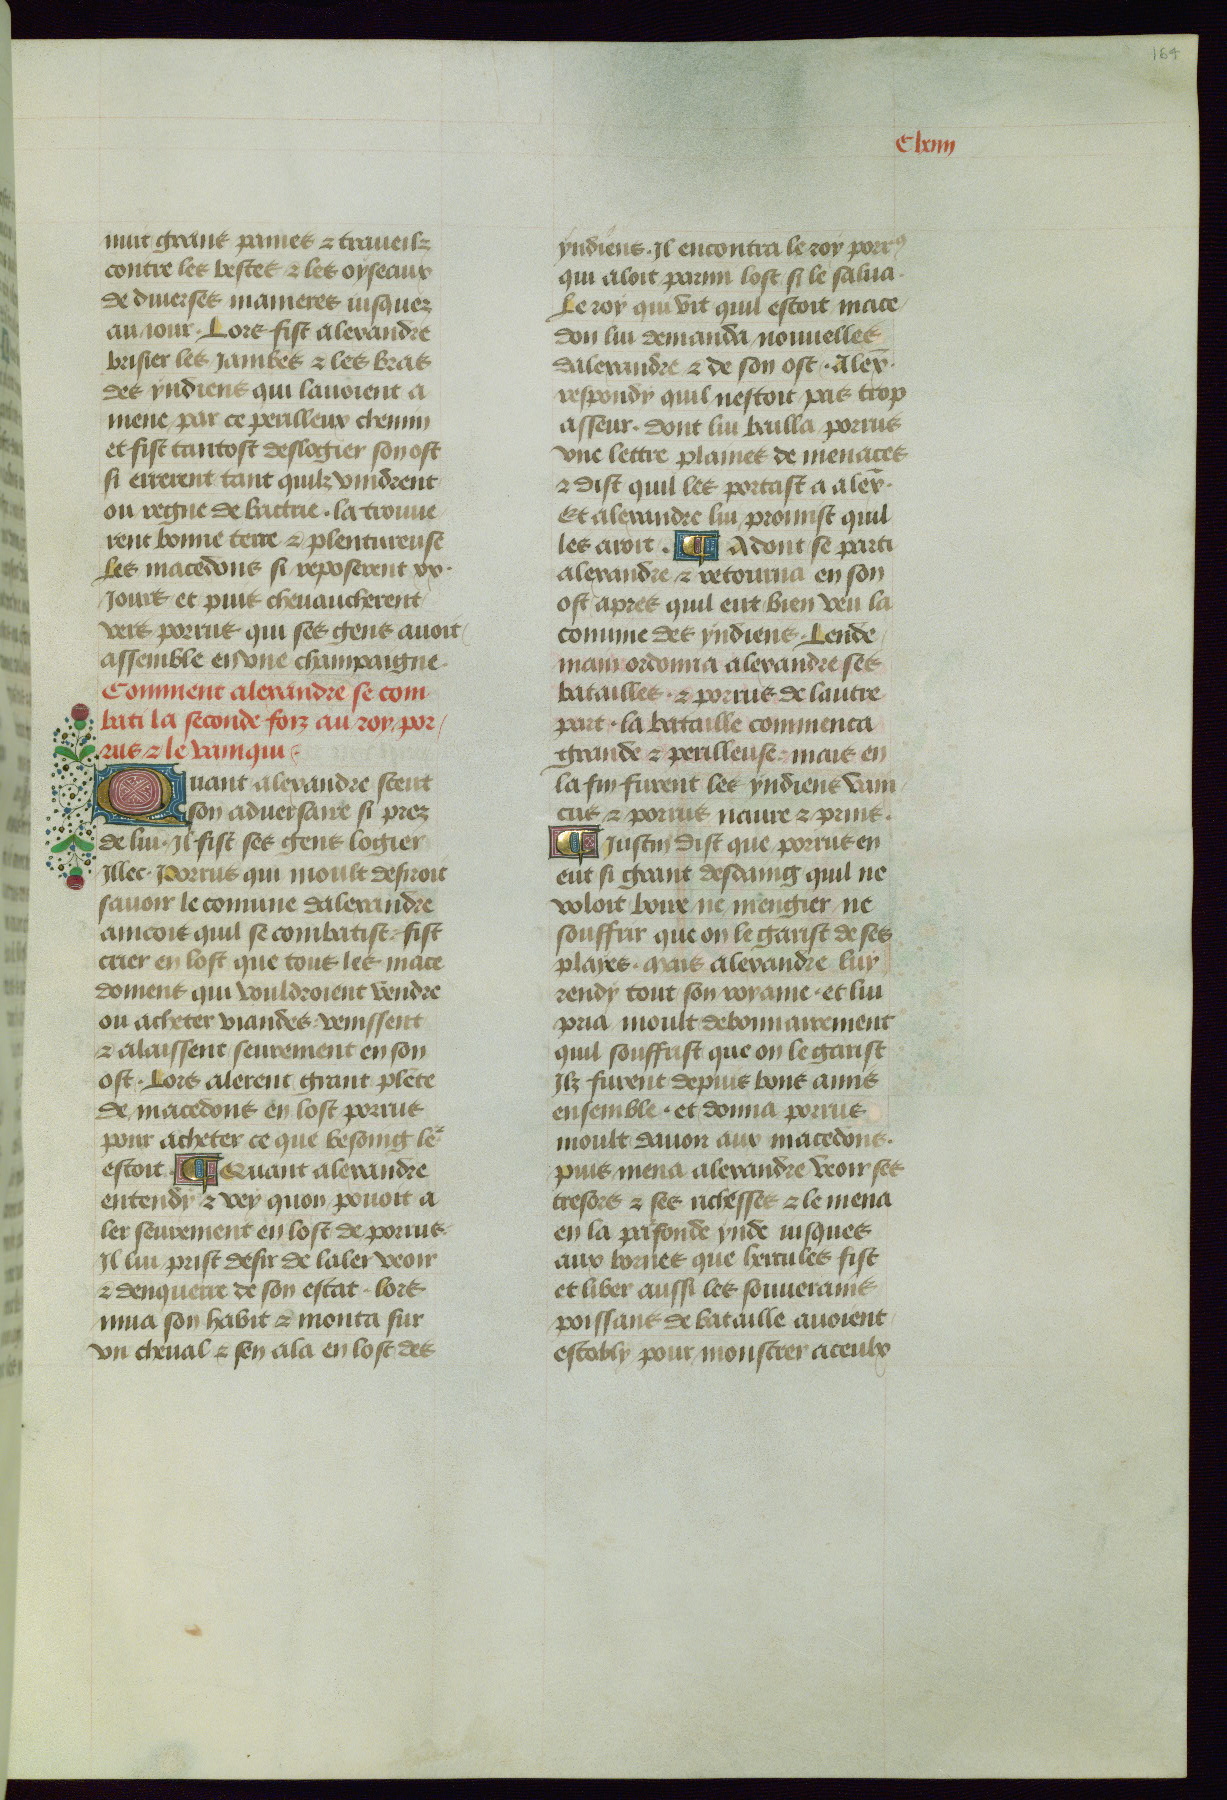 164
Clxiiij
nuit grans paines ⁊ traueilz
contre les bestes ⁊ les oyseaux
de diuerses manieres iusquez
au iour. Lors fist alexandre
brisier les jambes ⁊ les bras
des yndiens qui lauoient a
mene par ce perilleux chemin
et fist tantost deslogier son ost
si errerent tant quilz vindrent
ou regne de bactrie. la trouue
rent bonne terre ⁊ plentureuse
Les macedons si reposerent xx.
Jours et puis cheuaucherent
vers porrus qui ses gens auoit
assemble en vne champaigne.
Comment alexandre se com
bati la seconde foiz au roy por
rus ⁊ le vainqui
Quant alexandre scent
son aduersaire si prez
de lui. Il fist ses gens logier
Illec. Porrus qui moult desiroit
sauoir le comune dalexandre
aincois quil se combatist. fist
crier en lost que tous les mace
doniens qui vouldroient vendre
ou acheter viandes venissent
⁊ alaissent seurement en son
ost. Lors alerent grant plēte
de macedons en lost porrus
pour acheter ce que besoing le
estoit. ¶ Quant alexandre
entendy ⁊ vey quon pouoit a
ler seurement en lost de porrus.
Il lui prist desir de laler veoir
⁊ denquerre de son estat. lors
mua son habit ⁊ monta sur
vn cheual ⁊ sen ala en lost des
yndiens. Il encontra le roy porrꝰ
qui aloit parmi lost si le salua.
Le roy qui vit quil estoit mace
don lui demanda nouuelles
dalexandre ⁊ de son ost. Alex̄.
respondy quil nestoit pas trop
asseur. dont lui bailla porrus
vne lettre plaines de menaces
⁊ dist quil les portast a alex̄.
Et alexandre lui promist quil
les aroit. ¶ Adont se parti
alexandre ⁊ retourna en son
ost apres quil eut bien veu la
comune des yndiens. Lende
main ordonna alexandre ses
batailles. ⁊ porrus de lautre
part. la bataille commenca
grande ⁊ perilleuse. mais en
la fin furent les yndiens vain
cus ⁊ porrus naure ⁊ prins.
¶ Justin dist que porrus en
eut si grant desdaing quil ne
voloit boire ne mengier ne
souffrir que on le garist de ses
playes. Mais alexandre luy
rendy tout son royame. et lui
pria moult debonnairement
quil souffrist que on le garist
Ilz furent depuis bons amis
ensemble. et donna porrus
moult dauoir aux macedons.
puis mena alexandre veoir ses
tresors ⁊ ses richesses ⁊ le mena
en la parfonde ynde iusques
aux bornes que hercules fist
et liber aussi les souuerains
poissans de bataille auoient
estably pour monstrer a ceulx